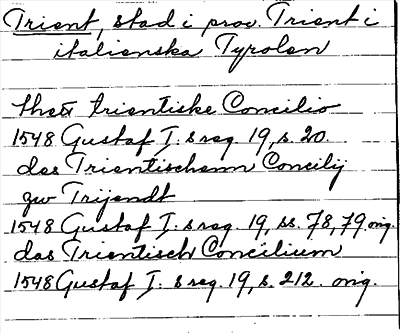 Trient, stad i prov. Trient i
italienska Tyrolen
thet trientiske Concilio
1548 Gustaf I:s reg. 19, s. 20.
des Trientischenn Concilij
zw Trijendt
1548 Gustaf I:s reg. 19, ss. 78, 79 orig.
das Trientisch Concilium
1548 Gustaf I:s reg. 19, s. 212. orig.